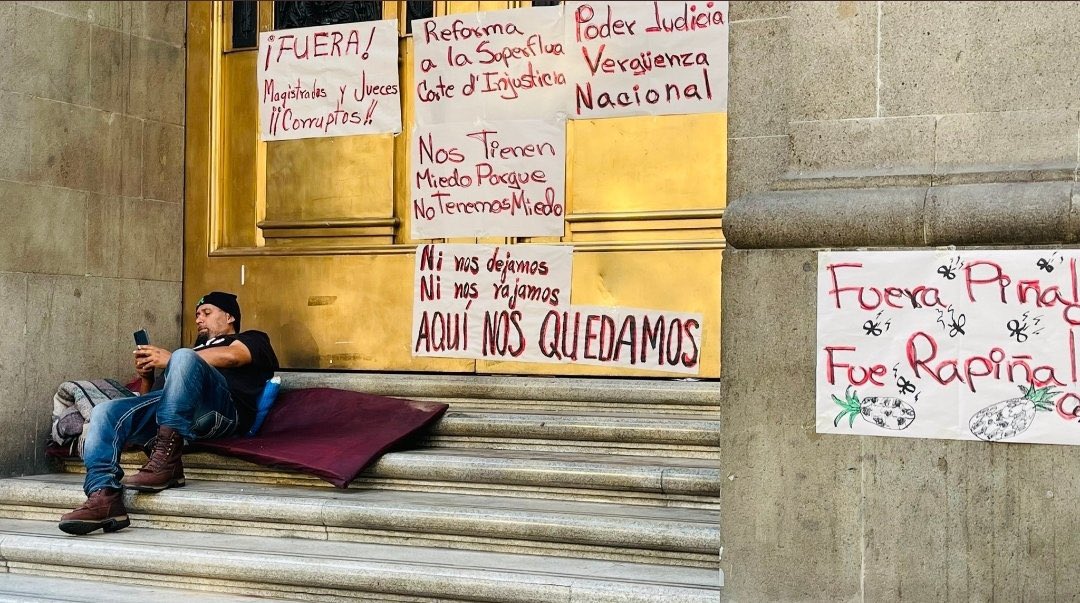 ¡FUERA!
Magistrados y Jueces
¡¡Corruptos!!
Reforma
a la Superflua
Corte d'Injusticia
Poder Judicia
Vergüenza
Nacional
Nos Tienen
Miedo Porque
No Tenemos Miedo
Ni nos dejamos
Ni nos rajamos
AQUÍ NOS QUEDAMOS
Fuera Piña!
Fue Rapiña!